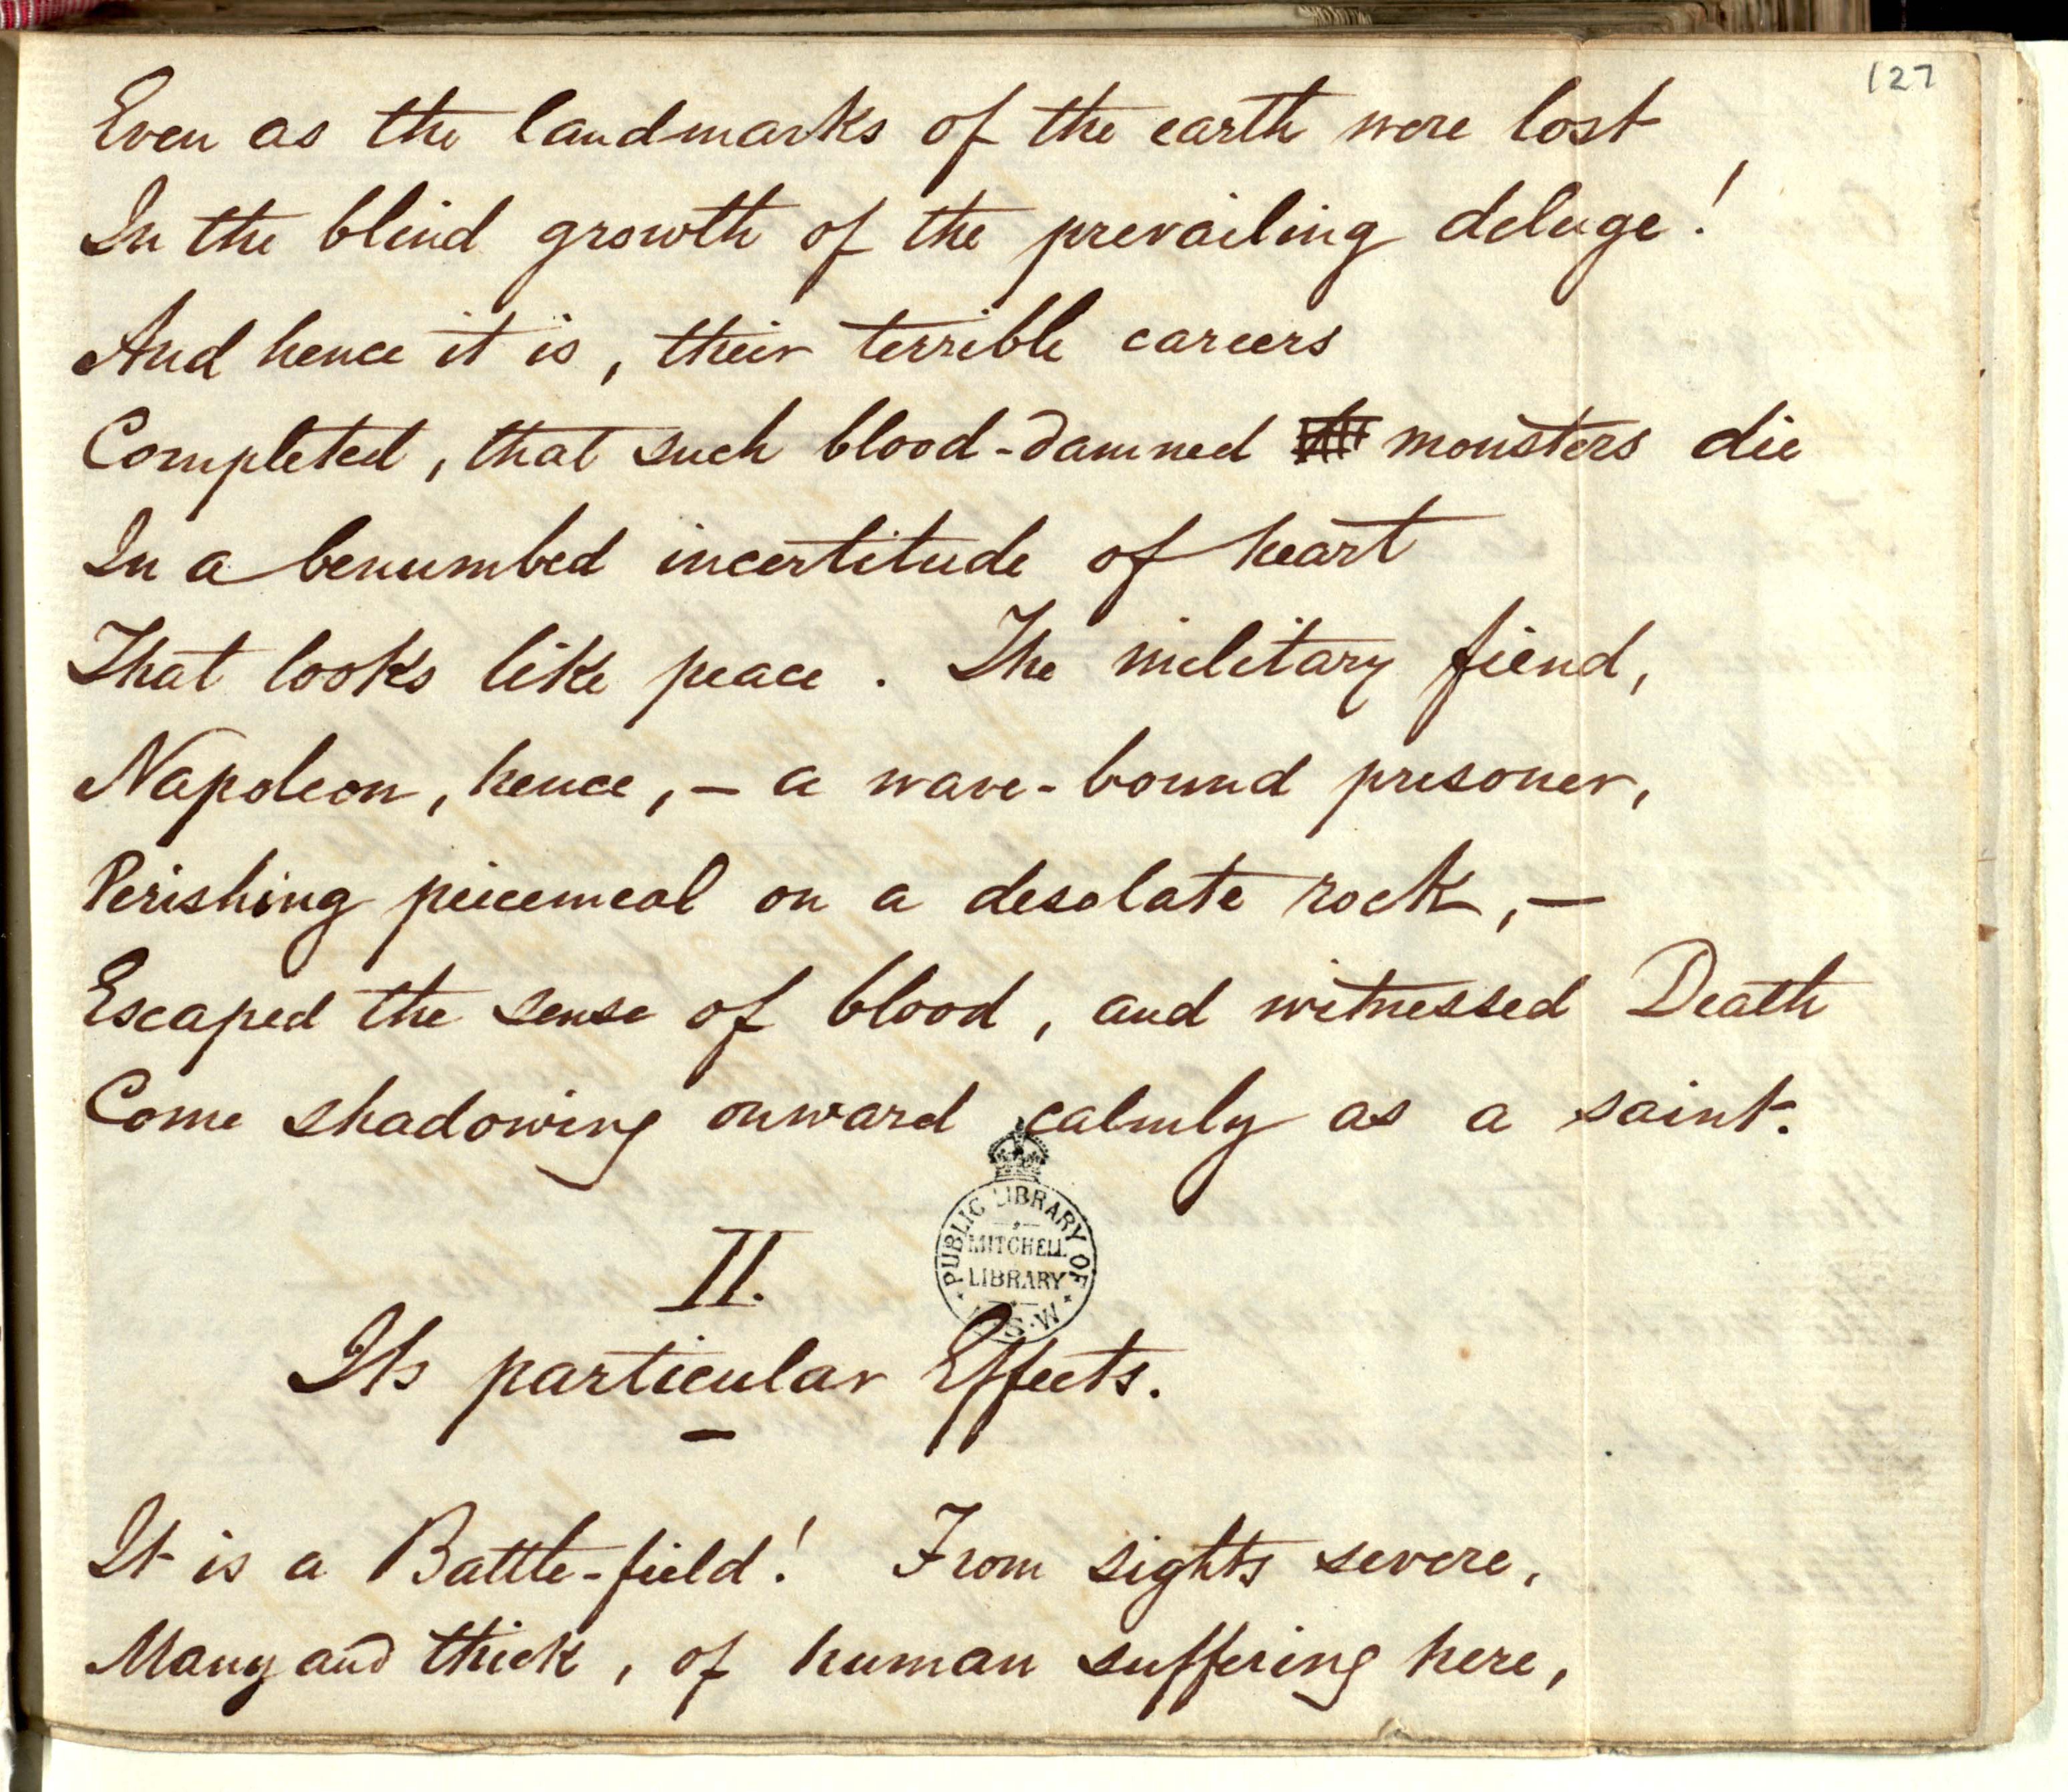 127
Even as the landmarks of the earth were lost
In the blind growth of the prevailing deluge!
And hence it is, their terrible careers
Completed, that such blood-damned monsters die
In a benumbed incertitude of heart
That looks like peace. The military fiend,
Napoleon, hence, — a wave-bound prisoner,
Perishing peicemeal on a desolate rock, —
Escaped the sense of blood, and witnessed Death
Come shadowing onward calmly as a saint.
PUBLIC LIBRARY OF
MITCHELL
LIBRARY
S.W
II.
Its particular Effects.
It is a Battle-field! From sights severe,
Many and thick, of human suffering here,